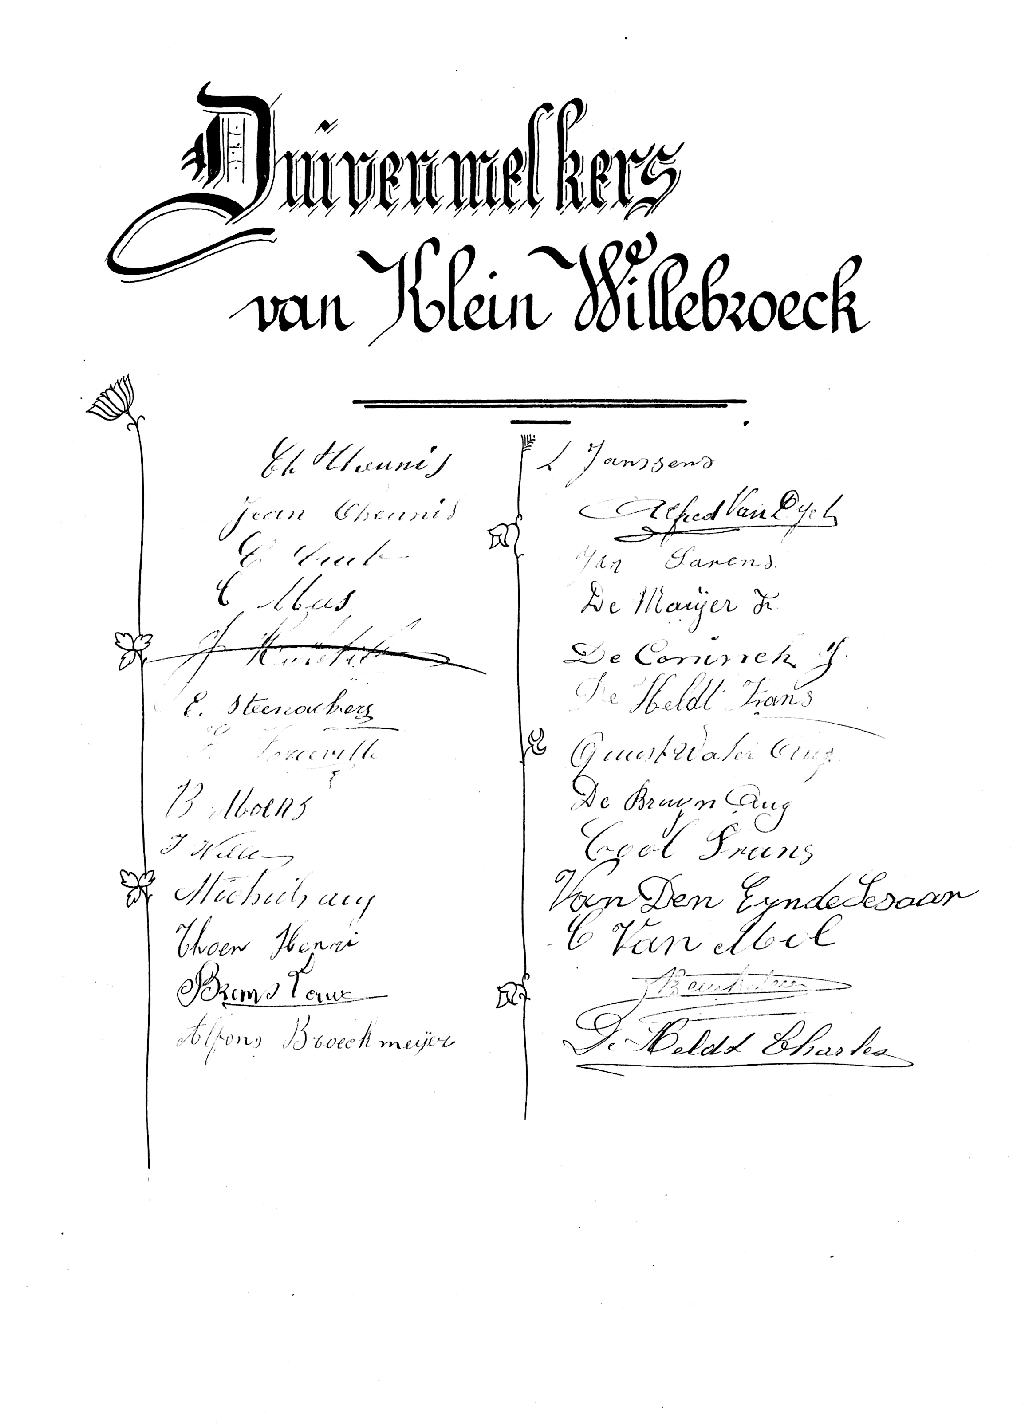 Duivenmelkers
van Klein Willebroeck
Ch Theunis
Jean Theunis
C Mus
J
E. Steenackers
B Moens
J Wille
Michiels aug
Thoen Henri
Brems Louis
Alfons Broeckmeijer
L Janssens
Alfred Van Dyck
Jan Sarens
De Maijer Fr
De Coninck J.
De Heldt Frans
De Bruyn Aug
Cool Frans
Van Den Eynde Sesaar
C Van Mol
De Heldt Charles